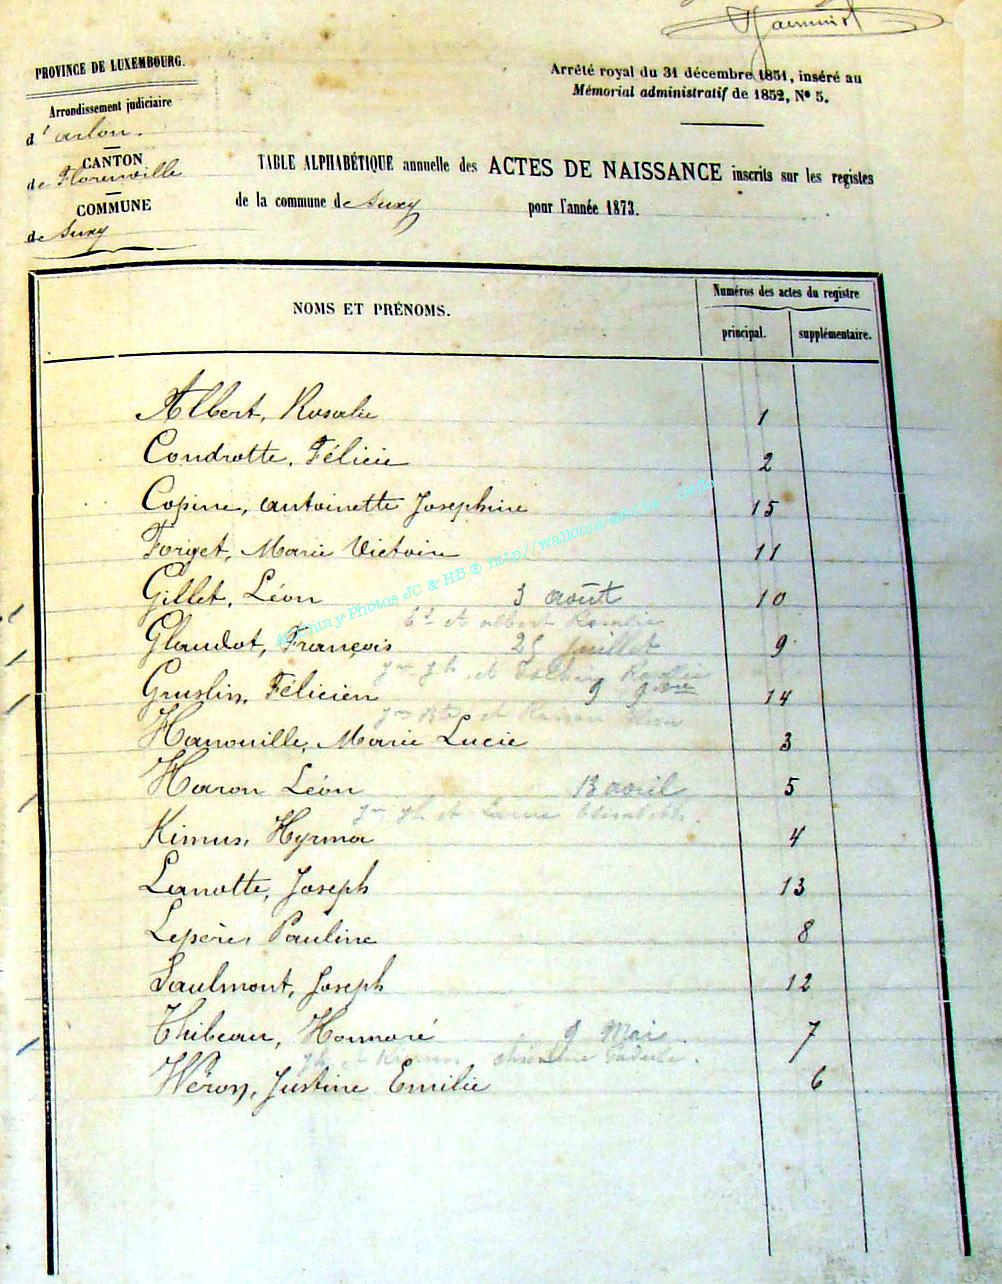 PROVINCE DE LUXEMBOURG.
Arrondissement judiciaire
d'arlon.
CANTON
de Florenville
COMMUNE
de Suxy
Arrêté royal du 31 décembre 1851, inséré au
Mémorial administratif de 1852, N° 5.
TABLE ALPHABÉTIQUE annuelle des ACTES DE NAISSANCE inscrits sur les registes
de la commune de Suxy pour l'année 1873.
NOMS ET PRÉNOMS.
Numéros des actes du registre
principal. supplémentaire.
Albert, Rosalie 1
Condrotte, Félicie 2
Copine, antoinette Josephine 15
Forget, Marie Victoire 11
Gillet, Léon 3 août 10
et albert Rosalie
Glaudot, François 25 juillet 9
Gruslin, Félicien 9 9bre 14
Hanouille, Marie Lucie 3
Haron Léon 13 avril 5
Kimus, Hyrma 4
Lanotte, Joseph 13
Lepère, Pauline 8
Saulmont, Joseph 12
Thibeau, Honnoré 9 Mai 7
Wéron, Justine Emilie 6
Machiny Photos JC & HB @ http://wallonia-asbl.be